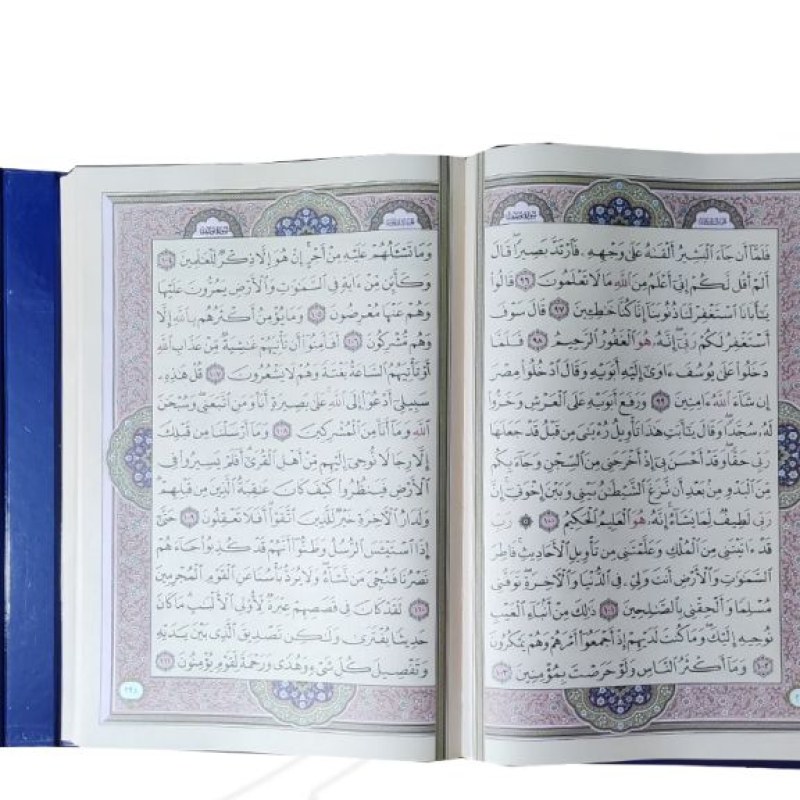 فَلَمَّا أَن جَاءَ الْبَشِيرُ أَلْقَاهُ عَلَىٰ وَجْهِهِ فَارْتَدَّ بَصِيرًا قَالَ
أَلَمْ أَقُل لَّكُمْ إِنِّي أَعْلَمُ مِنَ اللَّهِ مَا لَا تَعْلَمُونَ ﴿٩٦﴾ قَالُوا
يَا أَبَانَا اسْتَغْفِرْ لَنَا ذُنُوبَنَا إِنَّا كُنَّا خَاطِئِينَ ﴿٩٧﴾ قَالَ سَوْفَ
أَسْتَغْفِرُ لَكُمْ رَبِّي إِنَّهُ هُوَ الْغَفُورُ الرَّحِيمُ ﴿٩٨﴾ فَلَمَّا
دَخَلُوا عَلَىٰ يُوسُفَ آوَىٰ إِلَيْهِ أَبَوَيْهِ وَقَالَ ادْخُلُوا مِصْرَ
إِن شَاءَ اللَّهُ آمِنِينَ ﴿٩٩﴾ وَرَفَعَ أَبَوَيْهِ عَلَى الْعَرْشِ وَخَرُّوا
لَهُ سُجَّدًا وَقَالَ يَا أَبَتِ هَٰذَا تَأْوِيلُ رُؤْيَايَ مِن قَبْلُ قَدْ جَعَلَهَا
رَبِّي حَقًّا وَقَدْ أَحْسَنَ بِي إِذْ أَخْرَجَنِي مِنَ السِّجْنِ وَجَاءَ بِكُم
مِّنَ الْبَدْوِ مِن بَعْدِ أَن نَّزَغَ الشَّيْطَانُ بَيْنِي وَبَيْنَ إِخْوَتِي إِنَّ
رَبِّي لَطِيفٌ لِّمَا يَشَاءُ إِنَّهُ هُوَ الْعَلِيمُ الْحَكِيمُ ﴿١٠٠﴾ رَبِّ
قَدْ آتَيْتَنِي مِنَ الْمُلْكِ وَعَلَّمْتَنِي مِن تَأْوِيلِ الْأَحَادِيثِ فَاطِرَ
السَّمَاوَاتِ وَالْأَرْضِ أَنتَ وَلِيِّي فِي الدُّنْيَا وَالْآخِرَةِ تَوَفَّنِي
مُسْلِمًا وَأَلْحِقْنِي بِالصَّالِحِينَ ﴿١٠١﴾ ذَٰلِكَ مِنْ أَنبَاءِ الْغَيْبِ
نُوحِيهِ إِلَيْكَ وَمَا كُنتَ لَدَيْهِمْ إِذْ أَجْمَعُوا أَمْرَهُمْ وَهُمْ يَمْكُرُونَ
﴿١٠٢﴾ وَمَا أَكْثَرُ النَّاسِ وَلَوْ حَرَصْتَ بِمُؤْمِنِينَ ﴿١٠٣﴾
وَمَا تَسْأَلُهُمْ عَلَيْهِ مِنْ أَجْرٍ إِنْ هُوَ إِلَّا ذِكْرٌ لِّلْعَالَمِينَ ﴿١٠٤﴾
وَكَأَيِّن مِّنْ آيَةٍ فِي السَّمَاوَاتِ وَالْأَرْضِ يَمُرُّونَ عَلَيْهَا
وَهُمْ عَنْهَا مُعْرِضُونَ ﴿١٠٥﴾ وَمَا يُؤْمِنُ أَكْثَرُهُم بِاللَّهِ إِلَّا
وَهُم مُّشْرِكُونَ ﴿١٠٦﴾ أَفَأَمِنُوا أَن تَأْتِيَهُمْ غَاشِيَةٌ مِّنْ عَذَابِ اللَّهِ
أَوْ تَأْتِيَهُمُ السَّاعَةُ بَغْتَةً وَهُمْ لَا يَشْعُرُونَ ﴿١٠٧﴾ قُلْ هَٰذِهِ
سَبِيلِي أَدْعُو إِلَى اللَّهِ عَلَىٰ بَصِيرَةٍ أَنَا وَمَنِ اتَّبَعَنِي وَسُبْحَانَ
اللَّهِ وَمَا أَنَا مِنَ الْمُشْرِكِينَ ﴿١٠٨﴾ وَمَا أَرْسَلْنَا مِن قَبْلِكَ
إِلَّا رِجَالًا نُّوحِي إِلَيْهِم مِّنْ أَهْلِ الْقُرَىٰ أَفَلَمْ يَسِيرُوا فِي
الْأَرْضِ فَيَنظُرُوا كَيْفَ كَانَ عَاقِبَةُ الَّذِينَ مِن قَبْلِهِمْ
وَلَدَارُ الْآخِرَةِ خَيْرٌ لِّلَّذِينَ اتَّقَوْا أَفَلَا تَعْقِلُونَ ﴿١٠٩﴾ حَتَّىٰ
إِذَا اسْتَيْأَسَ الرُّسُلُ وَظَنُّوا أَنَّهُمْ قَدْ كُذِبُوا جَاءَهُمْ
نَصْرُنَا فَنُجِّيَ مَن نَّشَاءُ وَلَا يُرَدُّ بَأْسُنَا عَنِ الْقَوْمِ الْمُجْرِمِينَ
﴿١١٠﴾ لَقَدْ كَانَ فِي قَصَصِهِمْ عِبْرَةٌ لِّأُولِي الْأَلْبَابِ مَا كَانَ
حَدِيثًا يُفْتَرَىٰ وَلَٰكِن تَصْدِيقَ الَّذِي بَيْنَ يَدَيْهِ
وَتَفْصِيلَ كُلِّ شَيْءٍ وَهُدًى وَرَحْمَةً لِّقَوْمٍ يُؤْمِنُونَ ﴿١١١﴾
٢٤٨